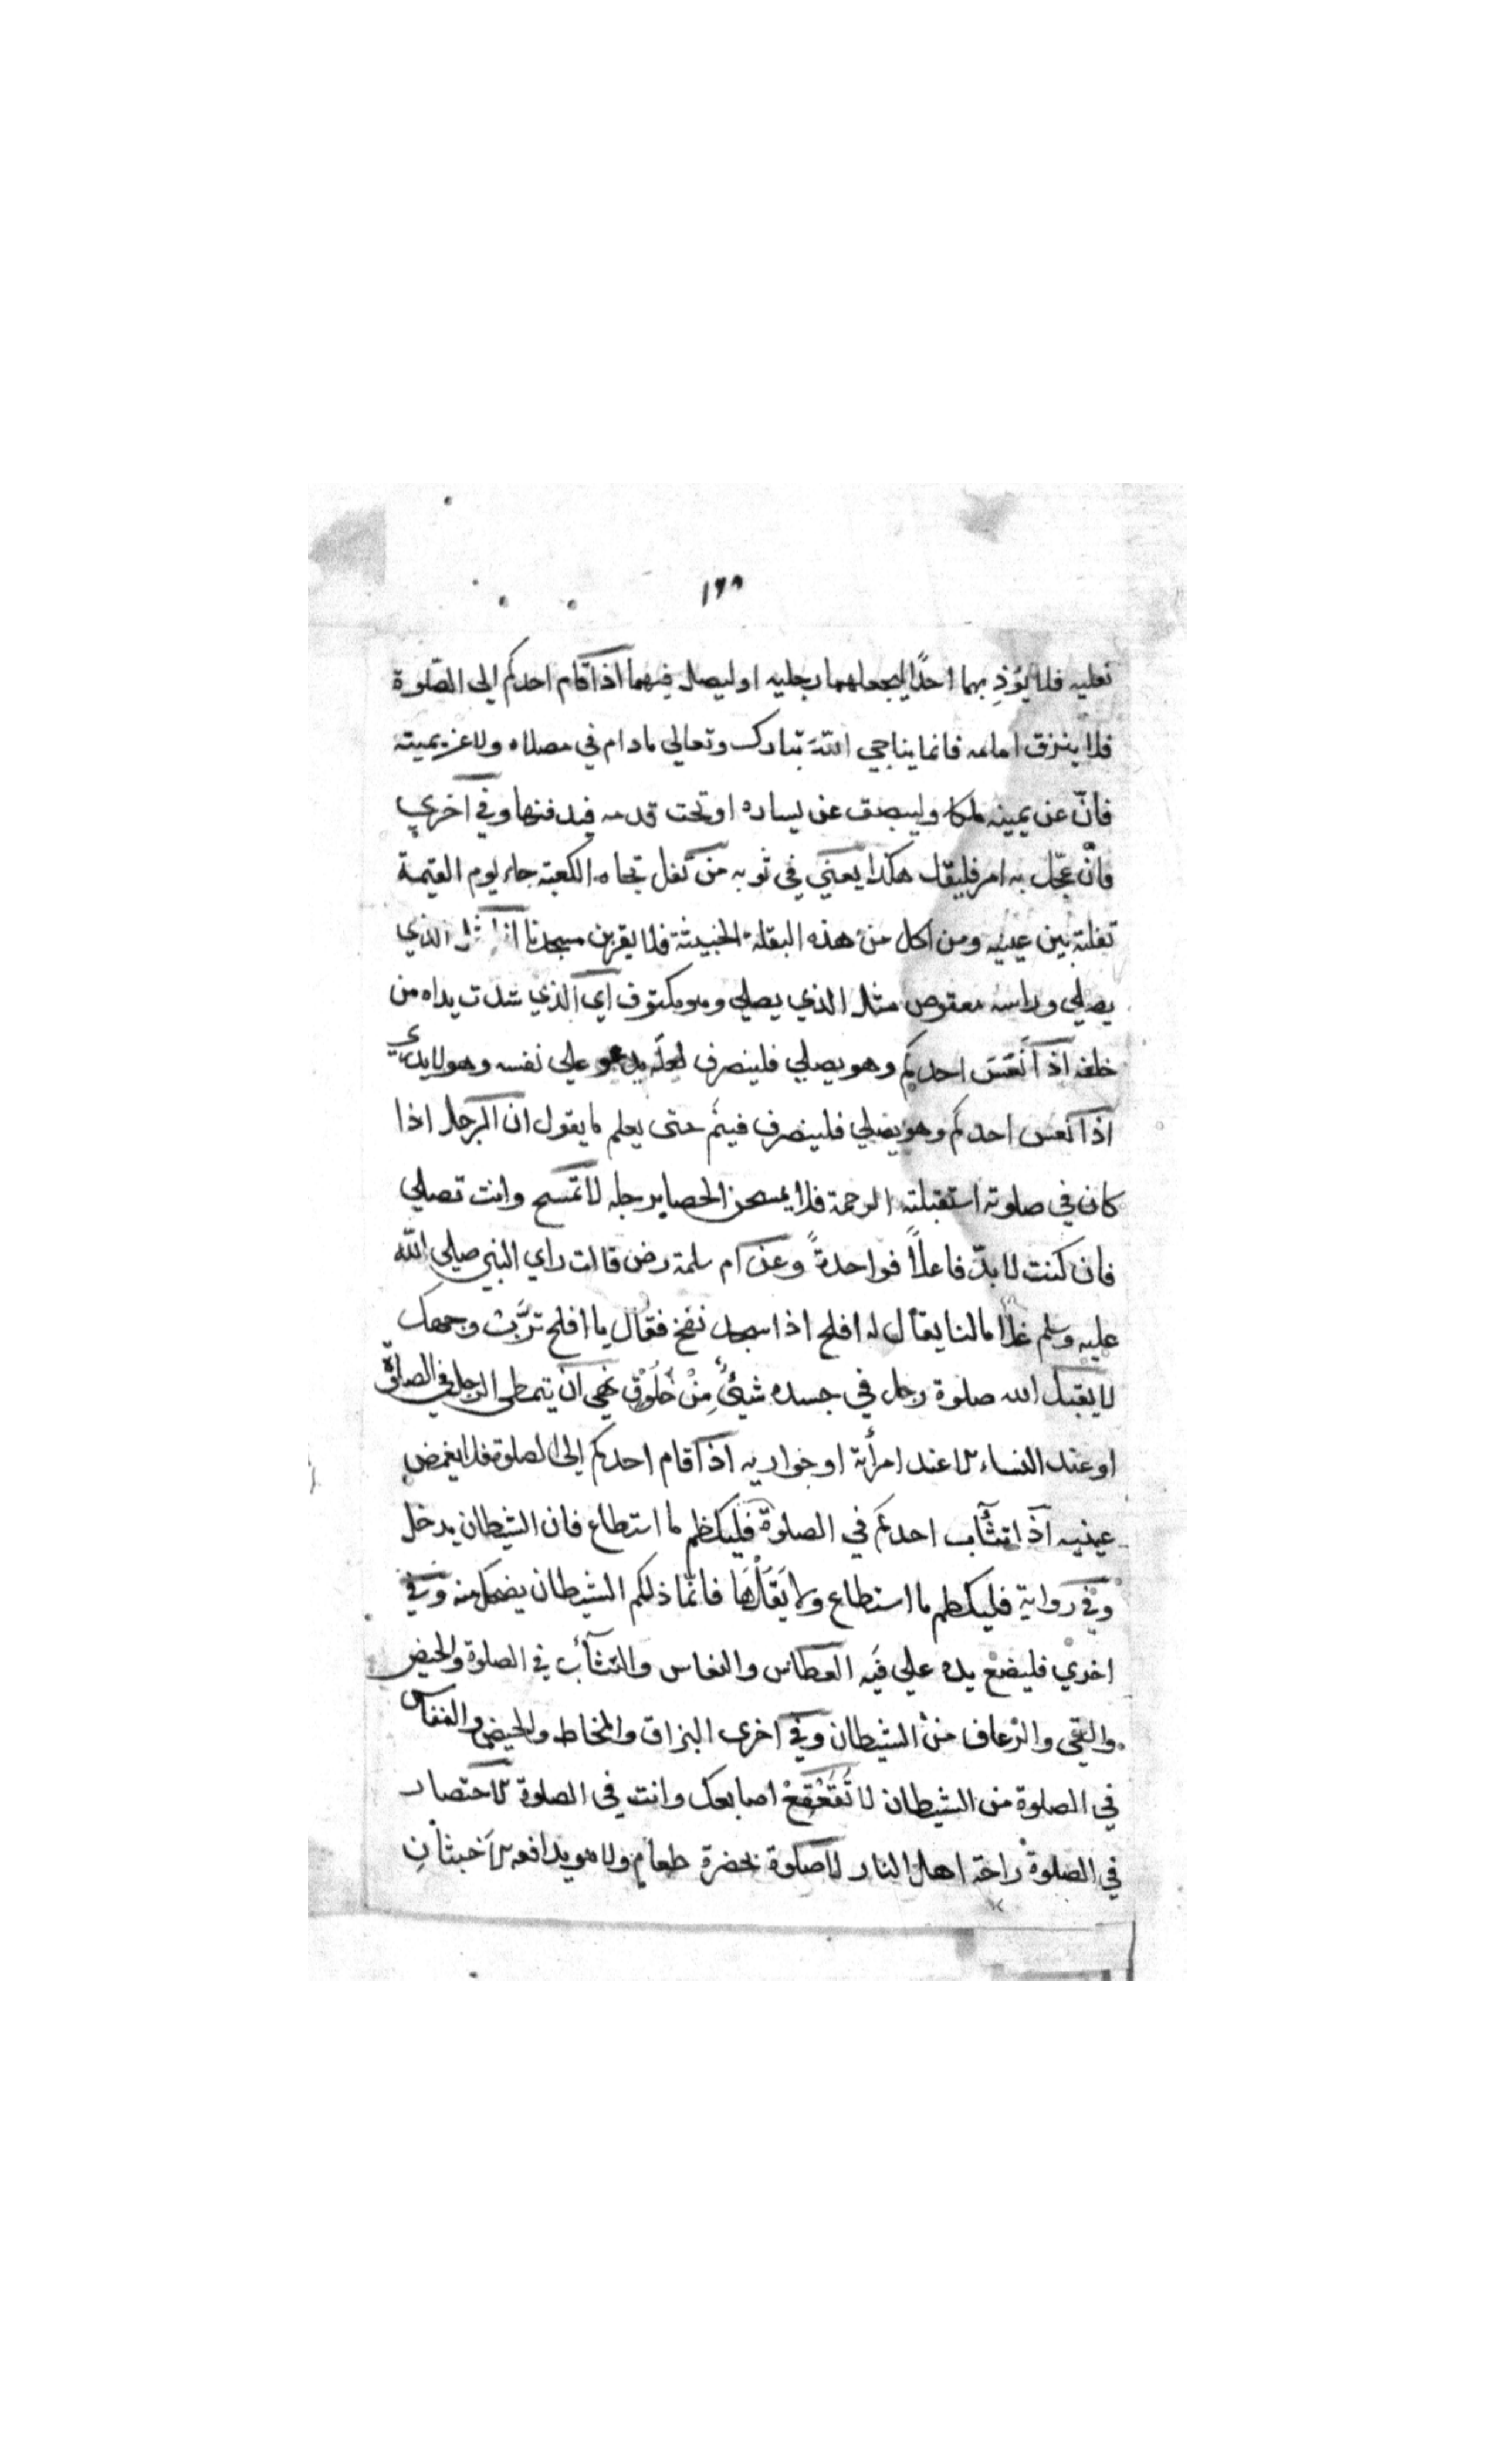 ١٦٨
نعليه فلا يؤذِ بهما احدًا ليجعلهما برجليه او ليصل فيهما اذا قام احدكم الي الصّلوة
فلا يبزق امامه فانما يناجي اللّه تبارك وتعالي مادام في مصلاه ولا عن يمينه
فانّ عن يمينه ملكا وليبصق عن يساره او تحت قدمه فيدفنها وفي اخري
فان عجّل به امر فليقل هكذا يعني في ثوبه من تفل تجاه الكعبة جاء يوم القيمة
تفلته بين عينيه ومن اكل من هذه البقلة الخبيثة فلا يقربن مسجدنا الذي
يصلي وراسه معقوص مثل الذي يصلي وهو مكتوف اي الذي شدت يداه من
خلفه اذا نعس احدكم وهو يصلي فلينصرف لعله يدعو علي نفسه وهو لا يدري
اذا نعس احدكم وهو يصلي فلينصرف فينم حتى يعلم ما يقول ان الرجل اذا
كان في صلوته استقبلته الرحمة فلا يمسحن الحصا برجله لا تمسح وانت تصلي
فان كنت لا بدّ فاعلاً فواحدةً وعن ام سلمة رض قالت راي النبي صلي اللّه
عليه وسلم غلاما لنا يقال له افلح اذا سجد نفخ فقال يا افلح ترّب وجهك
لا يقبل الله صلوة رجل في جسده شيئٌ مِنْ خَلُوْقٍ نهى ان يتمطى الرجل في الصلوة
او عند النساء الا عند امرأته او جواريه اذا قام احدكم الى الصلوة فلا يغمض
عينيه اذا تثآب احدكم في الصلوة فليكظم ما استطاع فان الشيطان يدخل
وفي رواية فليكظم ما استطاع ولا يَقُلْ هَا فانّما ذلكم الشيطان يضحك منه وفي
اخري فليضع يده علي فيه العطاس والنعاس والتثآب في الصلوة والحيض
والقئ والرعاف من الشيطان وفي اخرى البزاق والمخاط والحيض والنفاس
في الصلوة من الشيطان لا تُقَعْقِعْ اصابعك وانت في الصلوة الاختصار
في الصلوة راحة اهل النار لا صلوة بحضرة طعامٍ ولا هو يدافعه الاخبثانِ